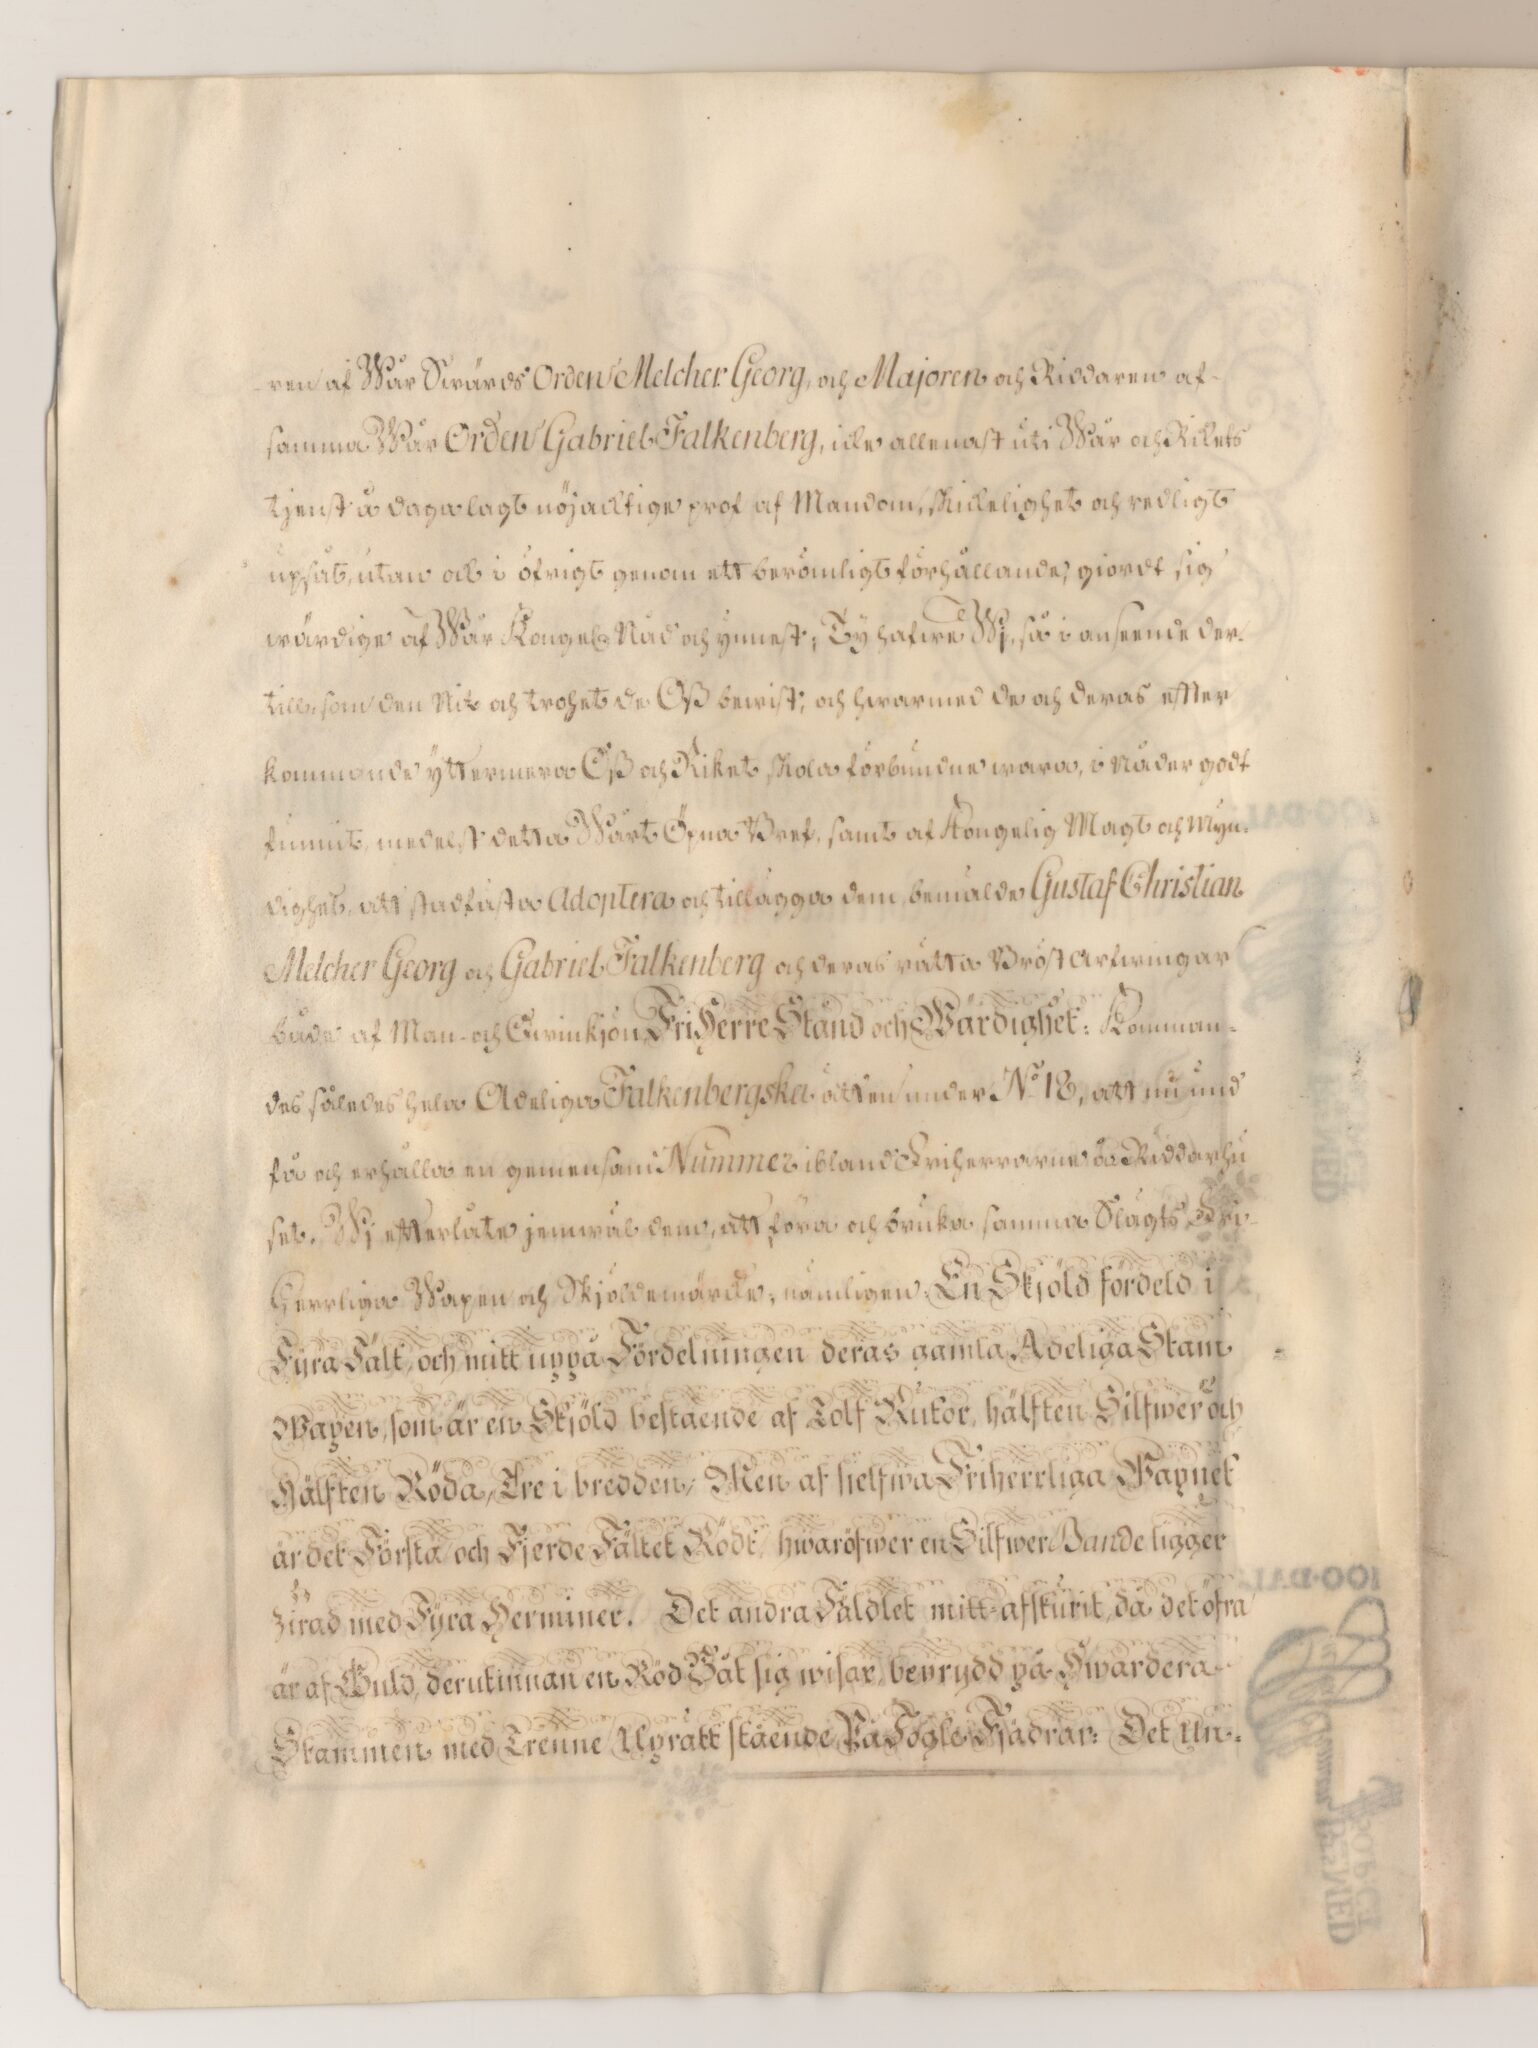 ren af Wår Swärds Orden Melcher Georg, och Majoren och Riddaren af
samma Wår Orden Gabriel Falkenberg, icke allenast uti Wår och Rikets
tjenst å daga lagt nöjacktige prof af Mandom, skickelighet och redligt
upsåt, utan ock i öfrigt genom ett berömligt förhållande, giordt sig
wärdige af Wår Kongel. Nåd och ynnest; Ty hafwe Wj, så i anseende der-
till, som den Nit och trohet de Oss bewist, och hwarmed de och deras effter
kommande yttermera Oss och Riket skola förbundne wara, i Nåder godt
funnit, medelst detta Wårt Öpna Bref, samt af Kongelig Magt och Myn-
dighet, att stadfästa Adoptera och tillägga dem bemälde Gustaf Christian
Melcher Georg och Gabriel Falkenberg och deras rätta Bröst Arfwingar
både af Man- och Qwinkjön FriHerre Stånd och Wärdighet: Komman-
des således hela Adeliga Falkenbergska ätten under No. 18, att nu und
få och erhålla en gemensam Nummer ibland Friherrarne å Riddarhu
set. Wj efterlåte jemwäl dem, att föra och bruka samma Slägts Fri-
Herrliga Wapen och Skjöldemärcke, nämligen: En Skjöld fördeld i
Fyra Fält, och mitt uppå Fördelningen deras gamla Adeliga Stam
Wapen, som är en Skjöld bestående af Tolf Rutor, hälften Silfwer och
Hälften Röda, Tre i bredden, Men af sielfwa Friherrliga Wapnet
är det Första och Fjerde Fältet Rödt, hwaröfwer en Silfwer Bande ligger
zirad med Fyra Herminer. Det andra Fäldtet mitt afskurit, då det öfra
är af Guld, derutinnan en Röd Båt sig wisar, beprydd på Hwardera
Stammen med Trenne Uprätt stående Påfogle Fjädrar: Det Un-
100·DAL
100·DAL